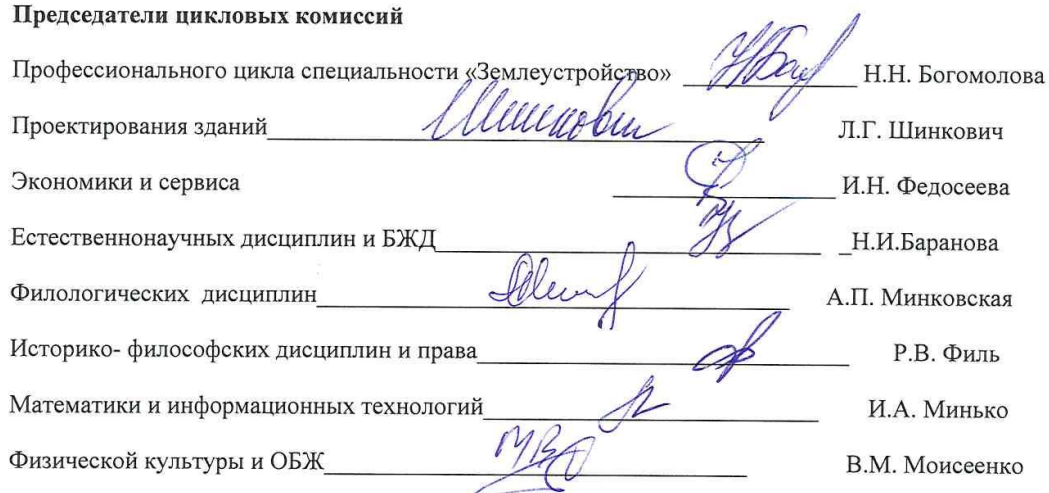 Председатели цикловых комиссий
Профессионального цикла специальности «Землеустройство» Н.Н. Богомолова
Проектирования зданий Л.Г. Шинкович
Экономики и сервиса И.Н. Федосеева
Естественнонаучных дисциплин и БЖД _Н.И.Баранова
Филологических дисциплин А.П. Минковская
Историко- философских дисциплин и права Р.В. Филь
Математики и информационных технологий И.А. Минько
Физической культуры и ОБЖ В.М. Моисеенко